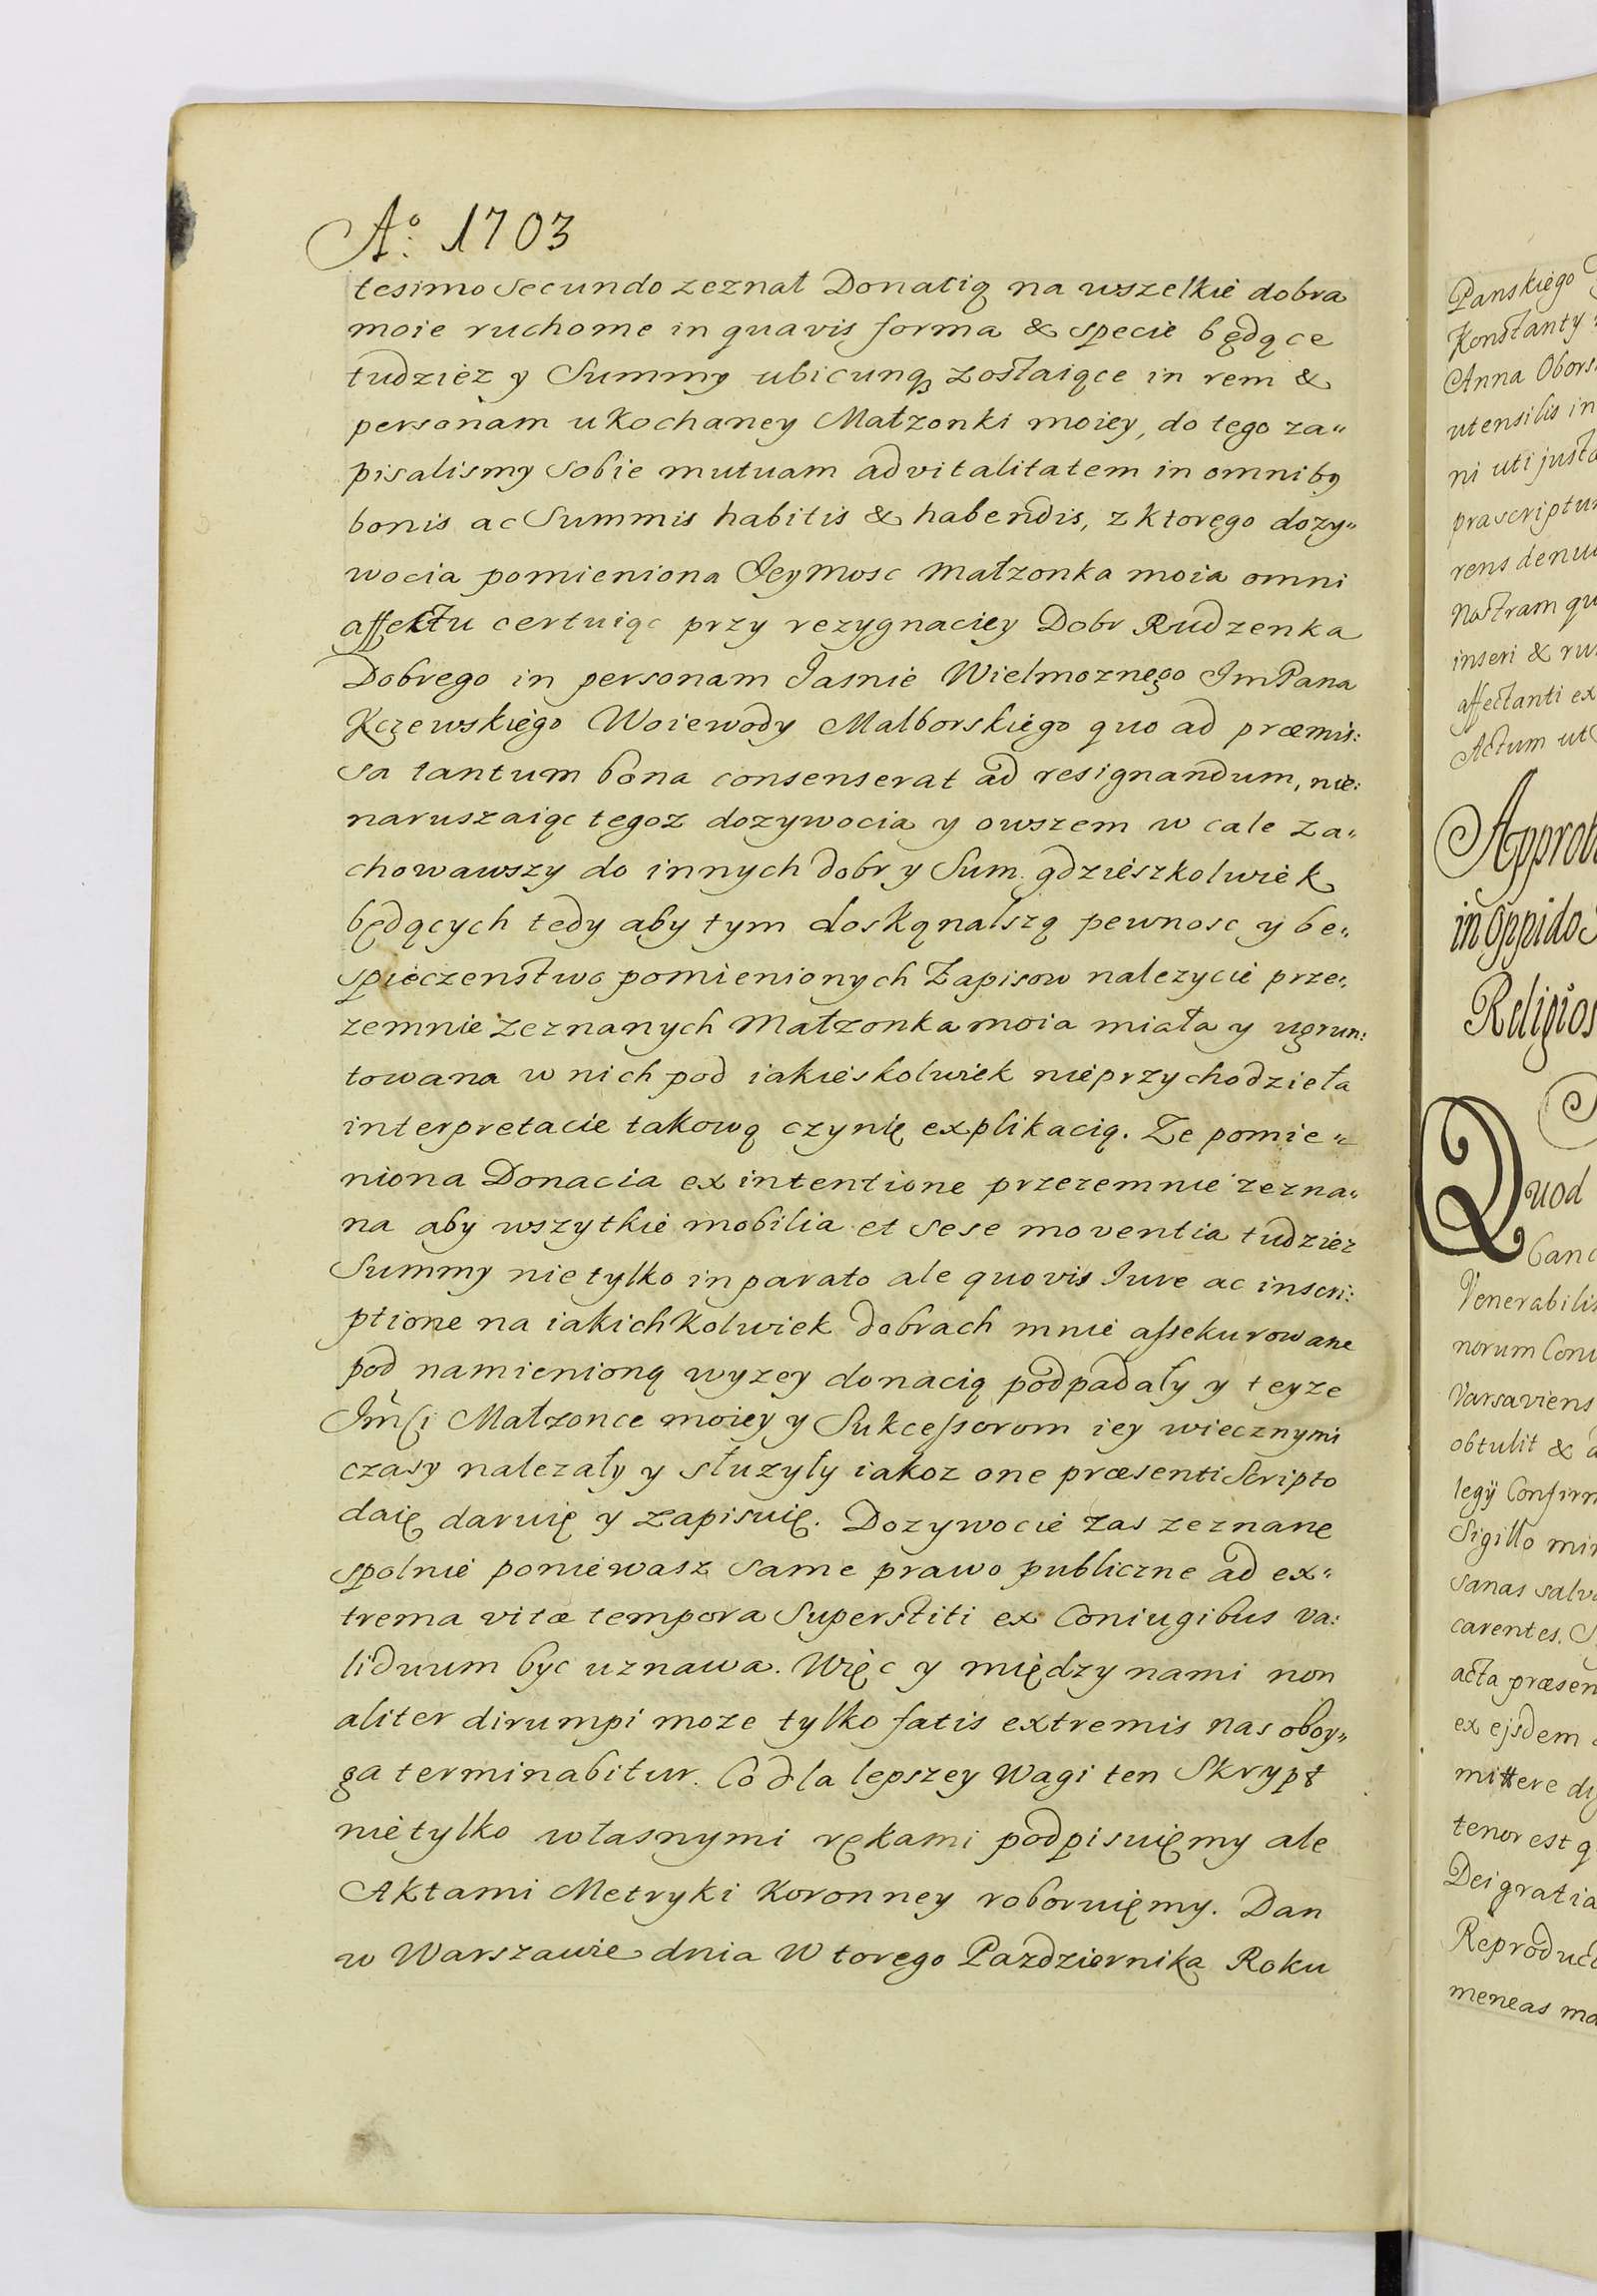 A° 1703
tesimo secundo zeznał Donatią na wszelkie dobra
moie ruchome in quavis forma & specie będące
tudziez y Summy ubicunq zostaiące in rem &
personam ukochaney Małzonki moiey, do tego za„
pisalismy sobie mutuam advitalitatem in omnibꝯ
bonis ac Summis habitis & habendis, z ktorego dozy„
wocia pomieniona Jeymosc małzonka moia omni
affektu certuiąc przy rezygnaciey Dobr Rudzenka
Dobrego in personam Jasnie Wielmoznego ImPana
Kczewskiego Woiewody Malborskiego quo ad præmis:
sa tantum bona consenserat ad resignandum, nie:
naruszaiąc tegoz dozywocia y owszem w cale za„
chowawszy do innych dobr y Sum gdzieszkolwiek
będących tedy aby tym doskąnalszą pewnosc y be„
spieczenstwo pomienionych Zapisow nalezycie prze„
zemnie zeznanych Małzonka moia miała y ugrun:
towana w nich pod iakieskolwiek nieprzychodzieła
interpretacie takową czynię explikacią. Ze pomie„
niona Donacia ex intentione przezemnie zezna„
na aby wszytkie mobilia et sese moventia tudziez
Summy nietylko in parato ale quovis Iure ac inscri:
ptione na iakichkolwiek dobrach mnie assekurowane
pod namienioną wyzey donacią podpadały y teyze
Jm̃ſci Małzonce moiey y Sukcessorom iey wiecznymi
czasy nalezały y słuzyły iakoz one præsenti Scripto
daię daruię y zapisuię. Dozywocie zas zeznane
spolnie poniewasz same prawo publiczne ad ex„
trema vitæ tempora Superstiti ex Coniugibus va:
liduum byc uznawa. Więc y między nami non
aliter dirumpi moze tylko fatis extremis nas oboy„
ga terminabitur. Co dla lepszey Wagi ten Skrypt
nietylko własnymi rękami podpisuięmy ale
Aktami Metryki Koronney roboruięmy. Dan
w Warszawie dnia Wtorego Pazdziernika Roku
Panskiego
Konstanty
Anna Obors
utensilis in
ni uti justa
præscriptu
rens denu
nostram qu
inseri & ru
affectanti ex
Actum ut
Approb
in Oppido
Religios
Quod
Canc
Venerabilis
norum Conv
Varsaviens
obtulit & a
legÿ Confirm
Sigillo min
sanas salv
carentes. S
acta præsen
ex ejsdem
mittere di
tenor est q
Dei gratia
Reproduc
meneas ma